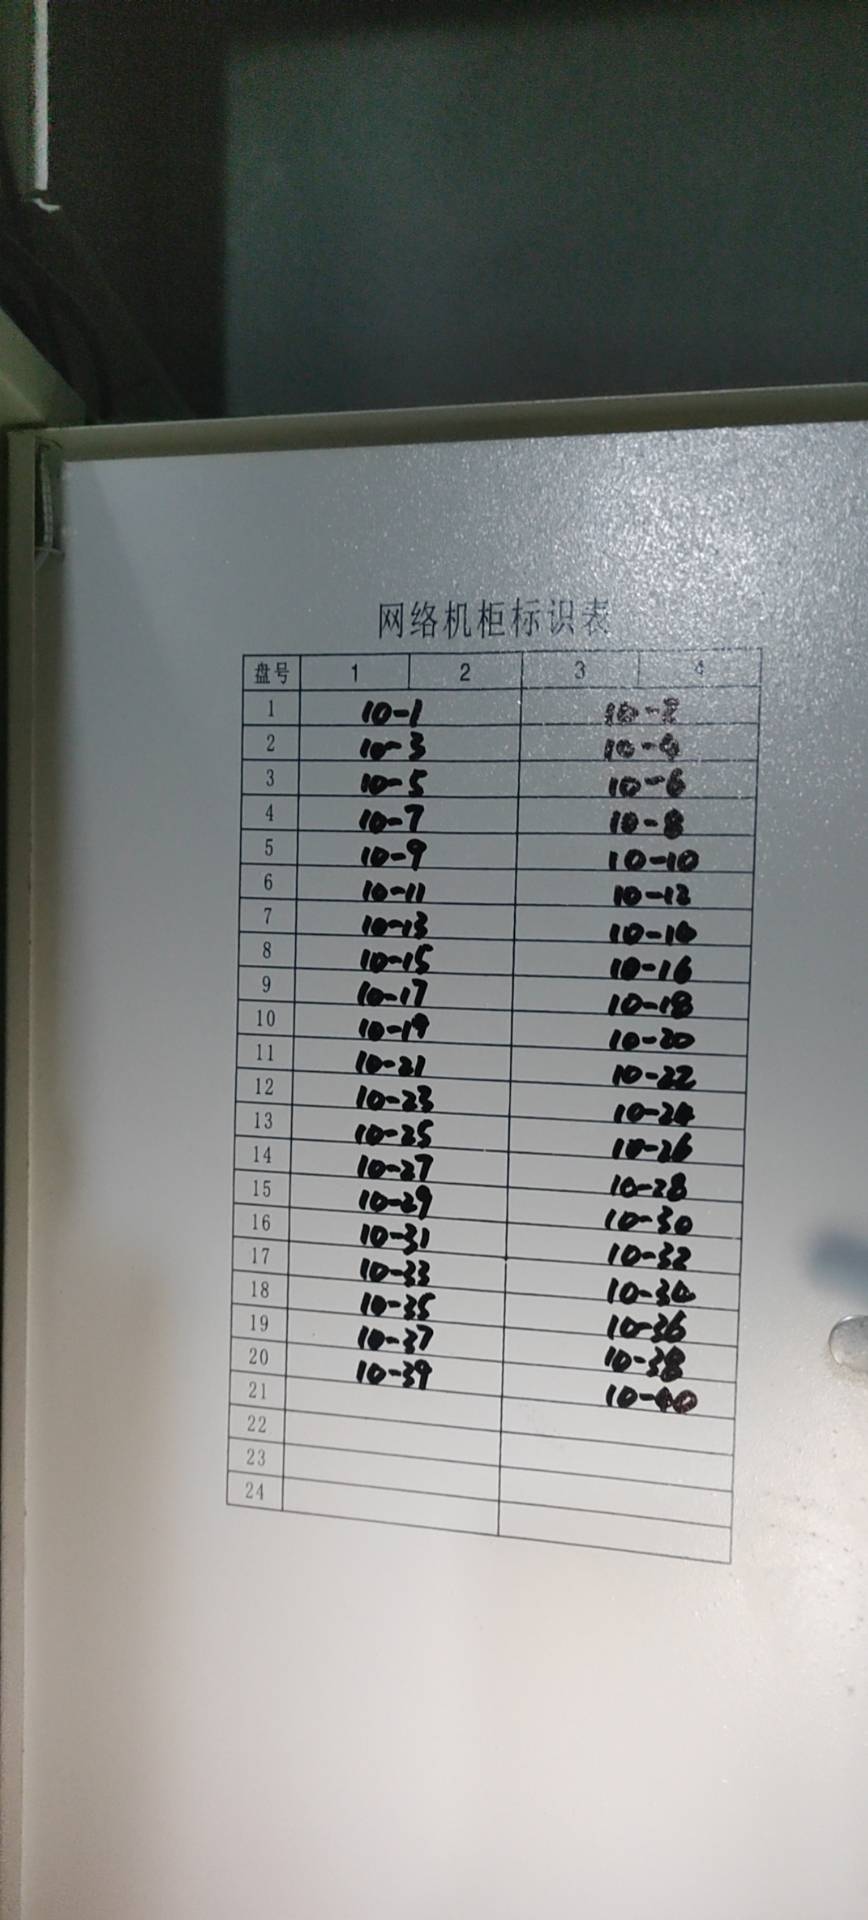 网络机柜标识表
盘号 1 2 3 4
1 10-1 10-2
2 10-3 10-4
3 10-5 10-6
4 10-7 10-8
5 10-9 10-10
6 10-11 10-12
7 10-13 10-14
8 10-15 10-16
9 10-17 10-18
10 10-19 10-20
11 10-21 10-22
12 10-23 10-24
13 10-25 10-26
14 10-27 10-28
15 10-29 10-30
16 10-31 10-32
17 10-33 10-34
18 10-35 10-36
19 10-37 10-38
20 10-39 10-40
21
22
23
24